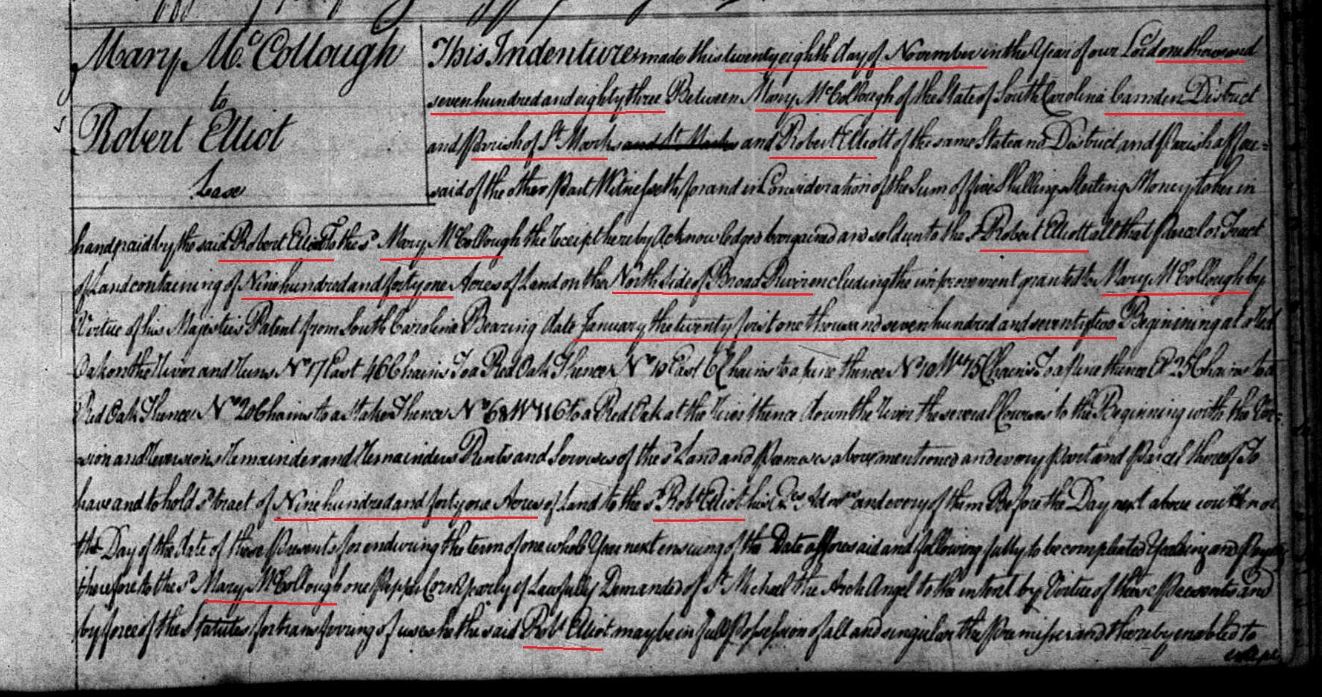 Mary McCollough
to
Robert Elliot
Lease
This Indenture made this twenty eighth day of November in the Year of our Lord one thousand
seven hundred and eighty three Between Mary McCollough of the State of South Carolina Camden District
and Parish of St Mark and St Mark and Robert Elliott of the same State and District and Parish affore=
said of the other Part Witnesseth for and in Consideration of the Sum of five Shillings Sterling Money to her in
hand paid by the said Robert Elliot to the sd Mary McCollough the Receipt hereby Acknowledged bargained and sold unto the sd Robert Elliott all that Parcel or Tract
of Land containing of Nine hundred and forty one Acres of Land on the North side of Broad River including the improvement granted to Mary McCollough by
Virtue of his Majestys Patent from South Carolina Bearing date January the twenty first one thousand seven hundred and seventy two Beginning at a Red
Oak on the River and Runs No 17 East 46 Chains To a Red Oak Thence No 10 East 6 Chains to a pine thence No 10 Wt 75 Chains To a pine thence Et 25 Chains to a
Red Oak Thence No 20 Chains to a Stake Thence No 68 W 116 to a Red Oak at the River thence down the River the several Courses to the Beginning with the Rever=
sion and Reversions Remainder and Remainders Rents and Services of the sd Land and Premises above mentioned and every Part and Parcel thereof To
have and to hold sd tract of Nine hundred and forty one Acres of Land to the sd Robt Elliot his Exs Admrs and every of them Before the Day next above written
the Day of the date of these Presents for enduring the term of one whole Year next ensuing of the Date afforesaid and following fully to be compleated Yealding and Paying
therefore to the sd Mary McCollough one Pepper Corn Yearly if Lawfully Demanded of St Michael the Arch Angel to the intent by Virtue of these Presents and
by force of the Statutes for transferring of uses he the said Robt Elliot may be in full Possession of all and singular the Premises and thereby enabled to